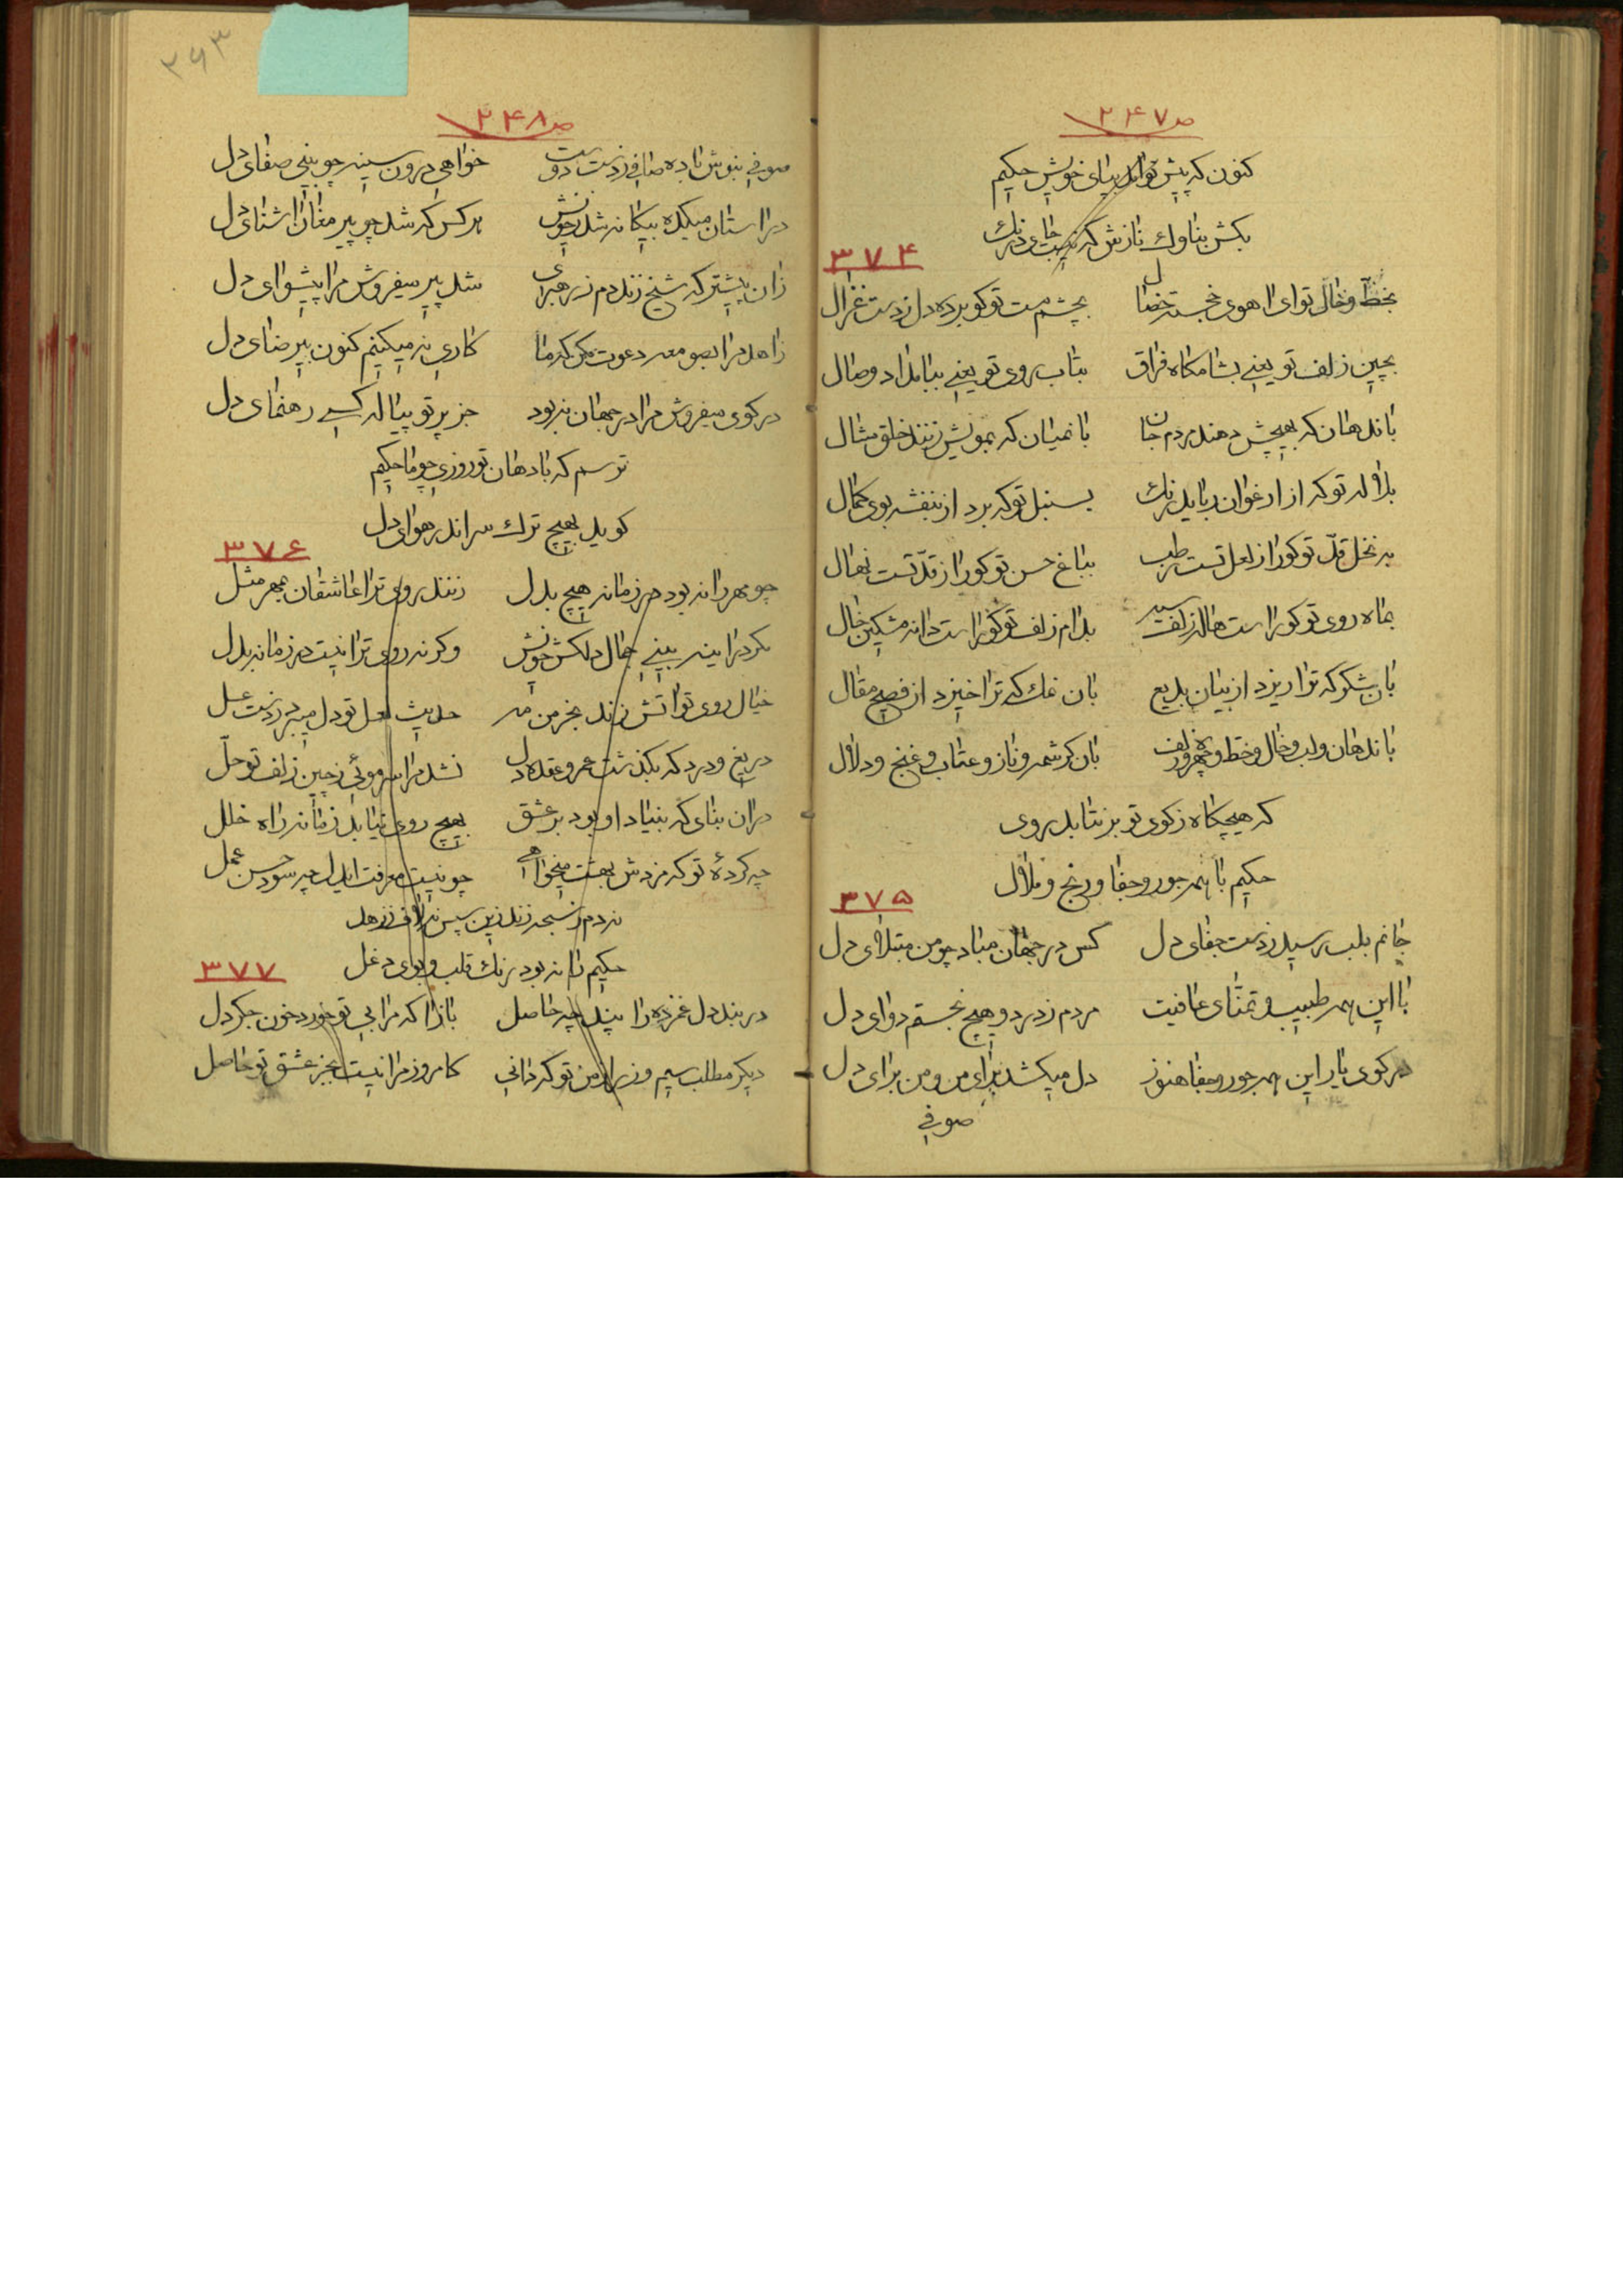 ص ۲۴۷
کنون که پیش تو آمد بپای خویش حکیم
بکش بناوک نازش که نیست جای درنگ
۳۷۴
بخط و خال تو ای اهوی خجسته خصال بچشم مست تو کو برده دل ز دست غزال
بچین زلف تو یعنی بشامکاه فراق بتاب روی تو یعنی ببامداد وصال
باندهان که بهیچش دهند مردم جان بانمیان که بمویش زنند خلق مثال
بلاله تو که از ارغوان رباید رنک بسنبل تو که برد از بنفشه بوی کمال
به نخل قد تو کورا ز لعل تست رطب بباغ حسن تو کورا ز قد تست نهال
بماه روی تو کوراست هاله زلف سیه بدام زلف تو کوراست دانه مشکین خال
بان شکر که ترا ریزد از بیان بدیع بان نمک که ترا خیزد از فصیح مقال
باندهان و لب و خال و خط و چهره و زلف بان کرشمه و ناز و عتاب و غنج و دلال
که هیچکاه ز کوی تو بر نتابد روی
حکیم با همه جور و جفا و رنج و ملال
۳۷۵
جانم بلب رسید ز دست جفای دل کس در جهان مباد چو من مبتلای دل
با این همه طبیب و تمنای عافیت مردم ز درد و هیچ نجستم دوای دل
در کوی یار این همه جور و جفا هنوز دل میکشد برای من و من برای دل
صوفی
۲۶۳
ص ۲۴۸
صوفی بنوش باده صافی ز دست دوست خواهی درون سینه چو بینی صفای دل
در استان میکده بیکانه شد ز خویش هر کس که شد چو پیر مغان اشنای دل
زان پیشتر که شیخ زند دم ز رهبری شد پیر میفروش مرا پیشوای دل
زاهد مرا بصومعه دعوت مکن که ما کاری نه میکنیم کنون بیرضای دل
در کوی میفروش مرا در جهان نبود جز پرتو پیاله کسی رهنمای دل
ترسم که با دهان تو روزی چو ما حکیم
کوید بهیچ ترک سر اندر هوای دل
۳۷۶
چو مهر را نه بود در زمانه هیچ بدل زنند روی ترا عاشقان بمهر مثل
مکر در اینه بینی جمال دلکش خویش وکرنه روی ترا نیست در زمانه بدل
خیال روی تو اتش زند بخرمن مه حدیث لعل تو دل میبرد ز دست عسل
دریغ و درد که بکذشت عمر و عقده دل نشد مرا سر موئی ز چین زلف تو حل
در ان بنای که بنیاد او بود بر عشق بهیچ روی نیابد زمانه راه خلل
چه کردهٔ تو که مزدش بهشت میخواهی چو نیست معرفت ایدل چه سود حسن عمل
نه دم ز سبحه زند زین سپس نه لاف ز زهد
حکیم را نه بود رنک قلب و بوی دغل
۳۷۷
در بند دل غمزده را پند چه حاصل بازا که مرا بی تو خورد خون جکر دل
دیکر مطلب سیم و زر از من تو که دانی کامروز مرا نیست بجز عشق تو حاصل